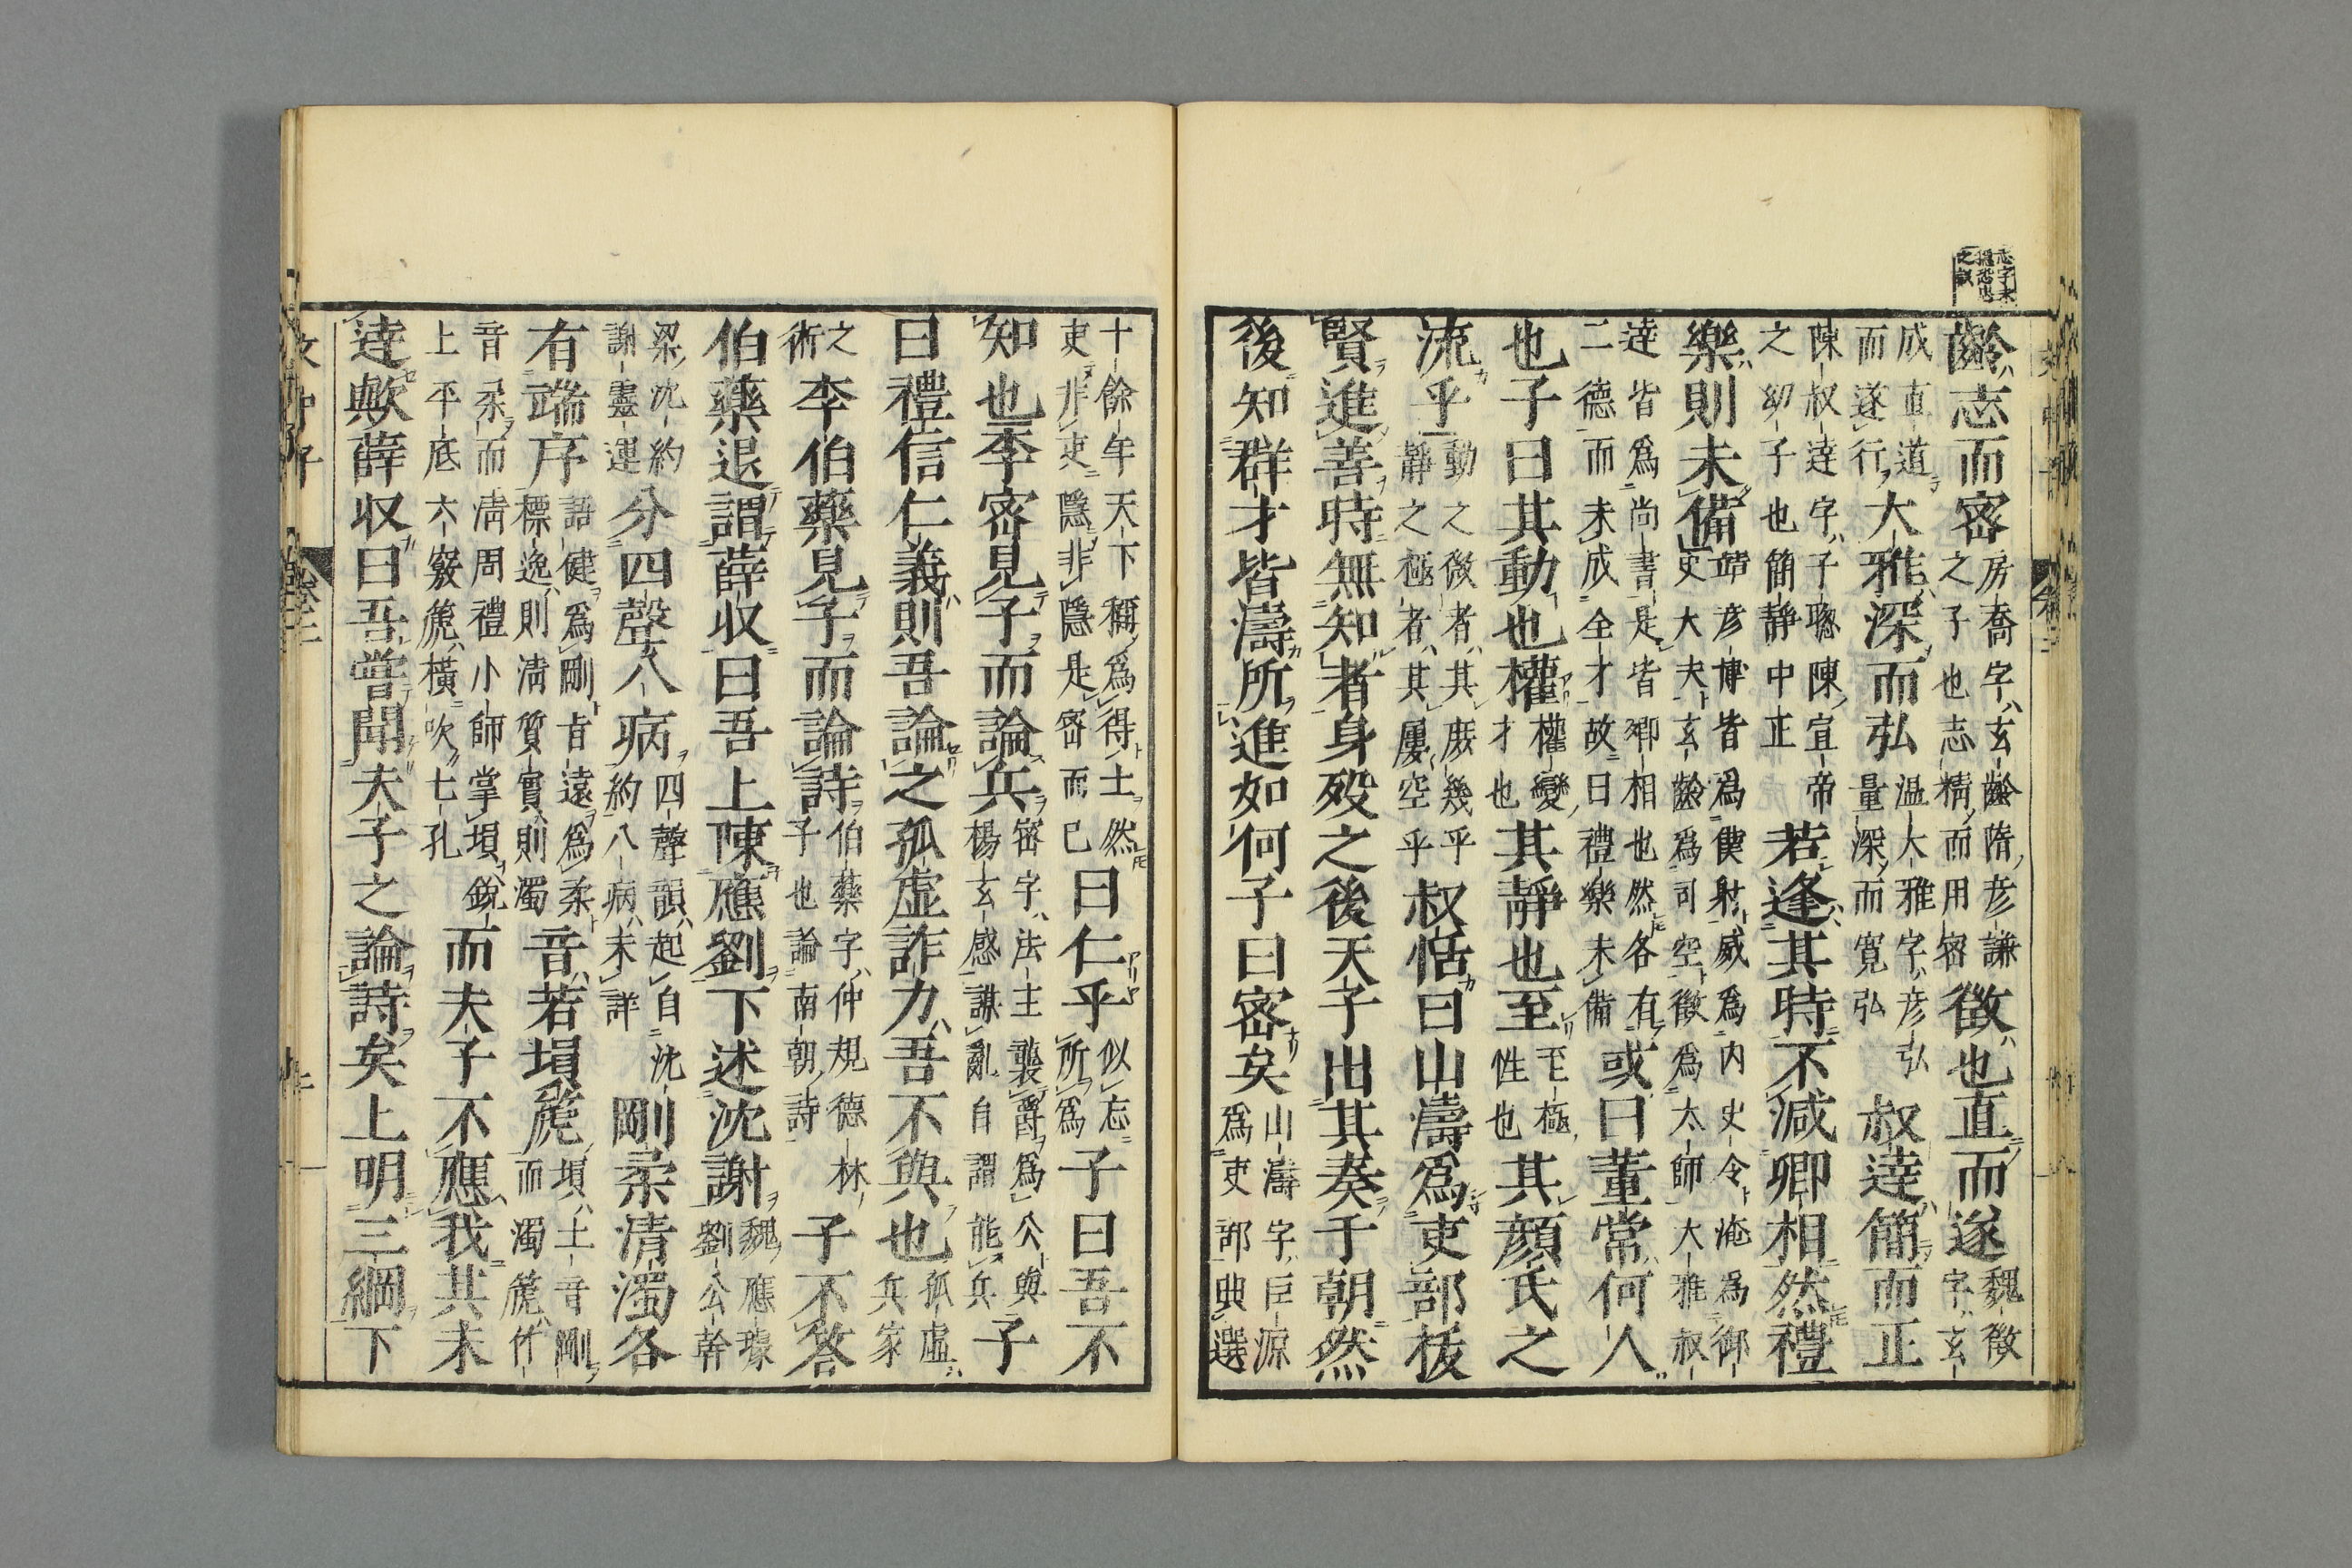 齡志而密房喬字玄齡隋彦謙之子也志精而用密徵也直而遂魏徵字玄
成直道而遂行大雅深而弘温大雅字彦弘量深而寛弘叔達簡而正
陳叔達字子聰陳宣帝之幼子也簡靜中正若逢其時不減卿相然禮
樂則未備靖彦博皆爲僕射威爲内史令淹爲御史大夫玄齡爲司空徵爲太師大雅叔
達皆爲尚書是皆卿相也然各有二德而未成全才故曰禮樂未備或曰董常何人
也子曰其動也權權變才也其靜也至至極性也其顔氏之
流乎動之微者其庶幾乎靜之極者其屢空乎叔恬曰山濤爲吏部拔
賢進善時無知者身歿之後天子出其奏于朝然
後知群才皆濤所進如何子曰密矣山濤字巨源爲吏部典選
十餘年天下稱爲得士然吏非吏隱非隱是密而已曰仁乎似忘所爲子曰吾不
知也李密見子而論兵密字法主襲爵爲公與楊玄感謀亂自謂能兵子
曰禮信仁義則吾論之孤虛詐力吾不與也孤虛兵家
之術李伯藥見子而論詩伯藥字仲規德林子也論南朝詩子不答
伯藥退謂薛收曰吾上陳應劉下述沈謝魏應璩劉公幹
梁沈約謝靈運分四聲八病四聲韻起自沈約八病未詳剛柔清濁各
有端序語健爲剛旨遠爲柔標逸則淸質實則濁音若塤篪塤土音剛而濁篪竹
音柔而淸周禮小師掌塤銳上平底六竅篪橫吹七孔而夫子不應我其未
達歟薛收曰吾嘗聞夫子之論詩矣上明三綱下